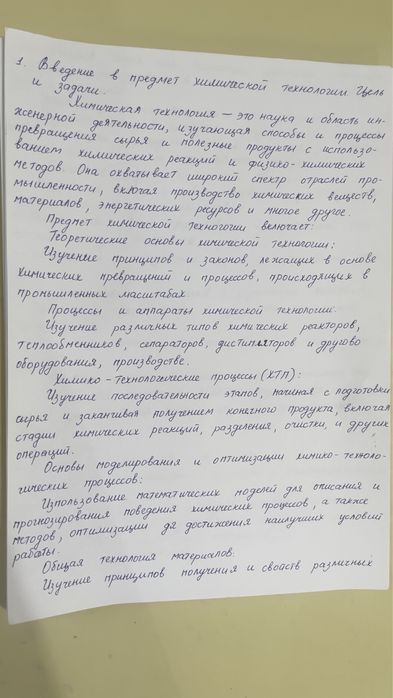 1. Введение в предмет химической технологии Цель
и задачи.
Химическая технология – это наука и область ин-
женерной деятельности, изучающая способы и процессы
превращения сырья и полезные продукты с использо-
ванием химических реакций и физико-химических
методов. Она охватывает широкий спектр отраслей про-
мышленности, включая производство химических веществ,
материалов, энергетических ресурсов и многое другое.
Предмет химической технологии включает:
Теоретические основы химической технологии:
Изучение принципов и законов, лежащих в основе
химических превращений и процессов, происходящих в
промышленных масштабах.
Процессы и аппараты химической технологии:
Изучение различных типов химических реакторов,
теплообменников, сепараторов, дистилляторов и другово
оборудования, производстве.
Химико-технологические процессы (ХТП):
Изучение последовательности этапов, начиная с подготовки
сырья и заканчивая получением конечного продукта, включая
стадии химических реакций, разделения, очистки, и других
операций.
Основы моделирования и оптимизации химико-техноло-
гических процессов:
Использование математических моделей для описания и
прогнозирования поведения химических процессов, а также
методов, оптимизации дя достижения наилучших условий
работы.
Общая технология материалов:
Изучение принципов получения и свойств различных